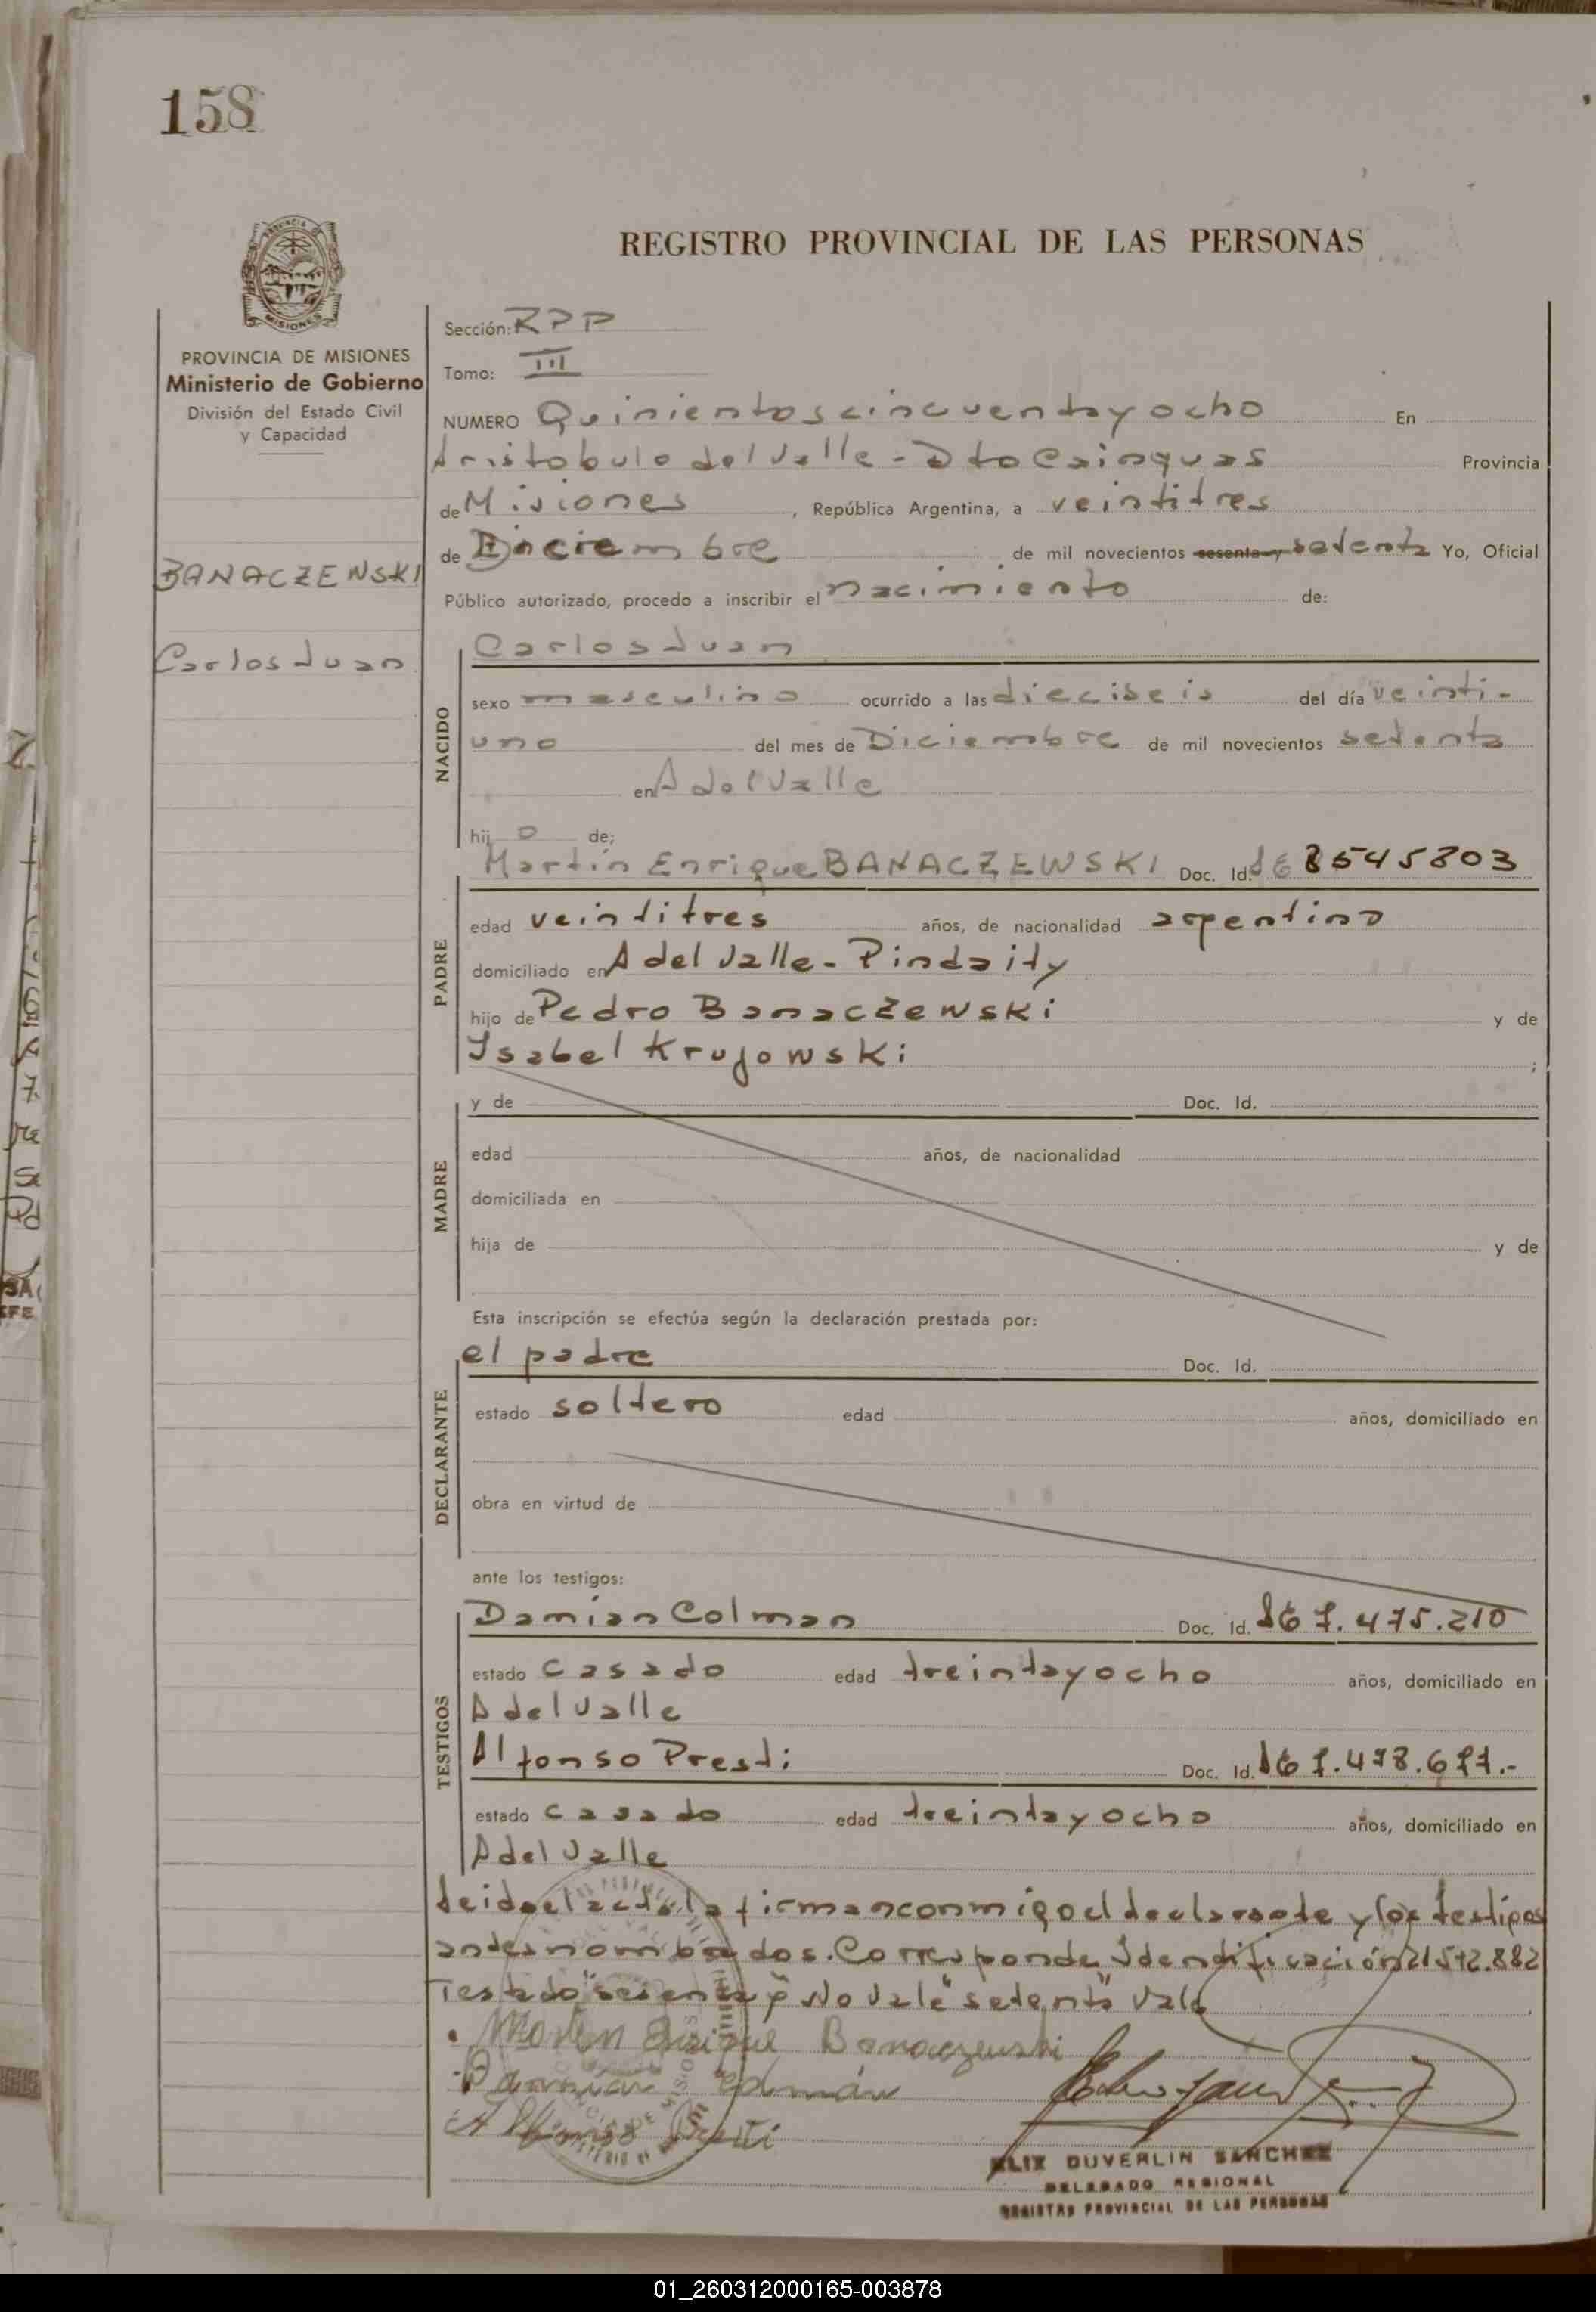 158
REGISTRO PROVINCIAL DE LAS PERSONAS
MISIONES
PROVINCIA DE MISIONES
Ministerio de Gobierno
División del Estado Civil
y Capacidad
BANACZEWSKI
Carlos Juan
Sección: RPP
Tomo: III
NUMERO Quinientos cincuenta y ocho En
Aristobulo del Valle - Dto Cainguas Provincia
de Misiones, República Argentina, a veintitres
de Diciembre de mil novecientos sesenta y setenta Yo, Oficial
Público autorizado, procedo a inscribir el nacimiento de:
NACIDO
Carlos Juan
sexo masculino ocurrido a las dieciseis del día veinti-
uno del mes de Diciembre de mil novecientos setenta
en A del Valle
hijo de;
PADRE
Martin Enrique BANACZEWSKI Doc. Id. 8545803
edad veintitres años, de nacionalidad argentino
domiciliado en A del Valle - Pindaity
hijo de Pedro Banaczewski y de
Isabel Krujowski ;
MADRE
y de Doc. Id.
edad años, de nacionalidad
domiciliada en
hija de y de
Esta inscripción se efectúa según la declaración prestada por:
DECLARANTE
el padre Doc. Id.
estado soltero edad años, domiciliado en
obra en virtud de
ante los testigos:
TESTIGOS
Damian Colman Doc. Id. 7.475.210
estado casado edad treinta y ocho años, domiciliado en
A del Valle
Alfonso Presti Doc. Id.
estado casado edad treinta y ocho años, domiciliado en
A del Valle
Leido el acta la firman conmigo el declarante y los testigos
antes nombrados. Corresponde Identificación 21572.882
Testado "sesenta y" No Vale "setenta" Vale
Martin Enrique Banaczewski
Damián Colmán
Alfonso Presti
ELIX DUVERLIN SANCHEZ
DELEGADO REGIONAL
REGISTRO PROVINCIAL DE LAS PERSONAS
01_260312000165-003878